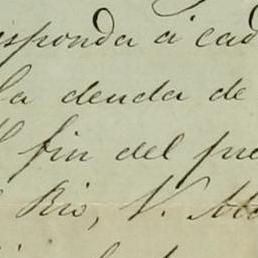 esponda á cad
la deuda de
l fin del pre
Rio, V.